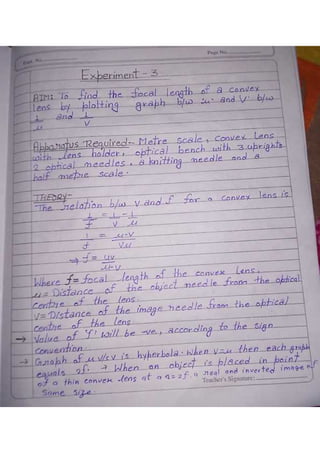 Expt. No.
Page No.
Experiment - 3
AIM: To find the focal length of a convex
lens by plotting graph b/w u. and V. b/w
1/u and 1/V
Apparatus Required:- Metre scale, convex Lens
with lens holder, optical bench with 3 uprights
2 optical needles, a knitting needle and a
half metre scale.
THEORY:-
The relation b/w V and f for a convex lens is
1/f = 1/V - 1/u
1/f = u-V/Vu
⇒ f = uv/u-v
Where f = focal length of the convex lens.
u = Distance of the object needle from the optical
centre of the lens.
V = Distance of the image needle from the optical
centre of the lens
→ Value of 'f' will be -ve, according to the sign
convention.
→ Graph of u v/s V is hyperbola. When V=u then each graph
equals 2f. → When an object is placed in point
of a thin convex lens at a = 2f. a real and inverted image of
Same size
Teacher's Signature: